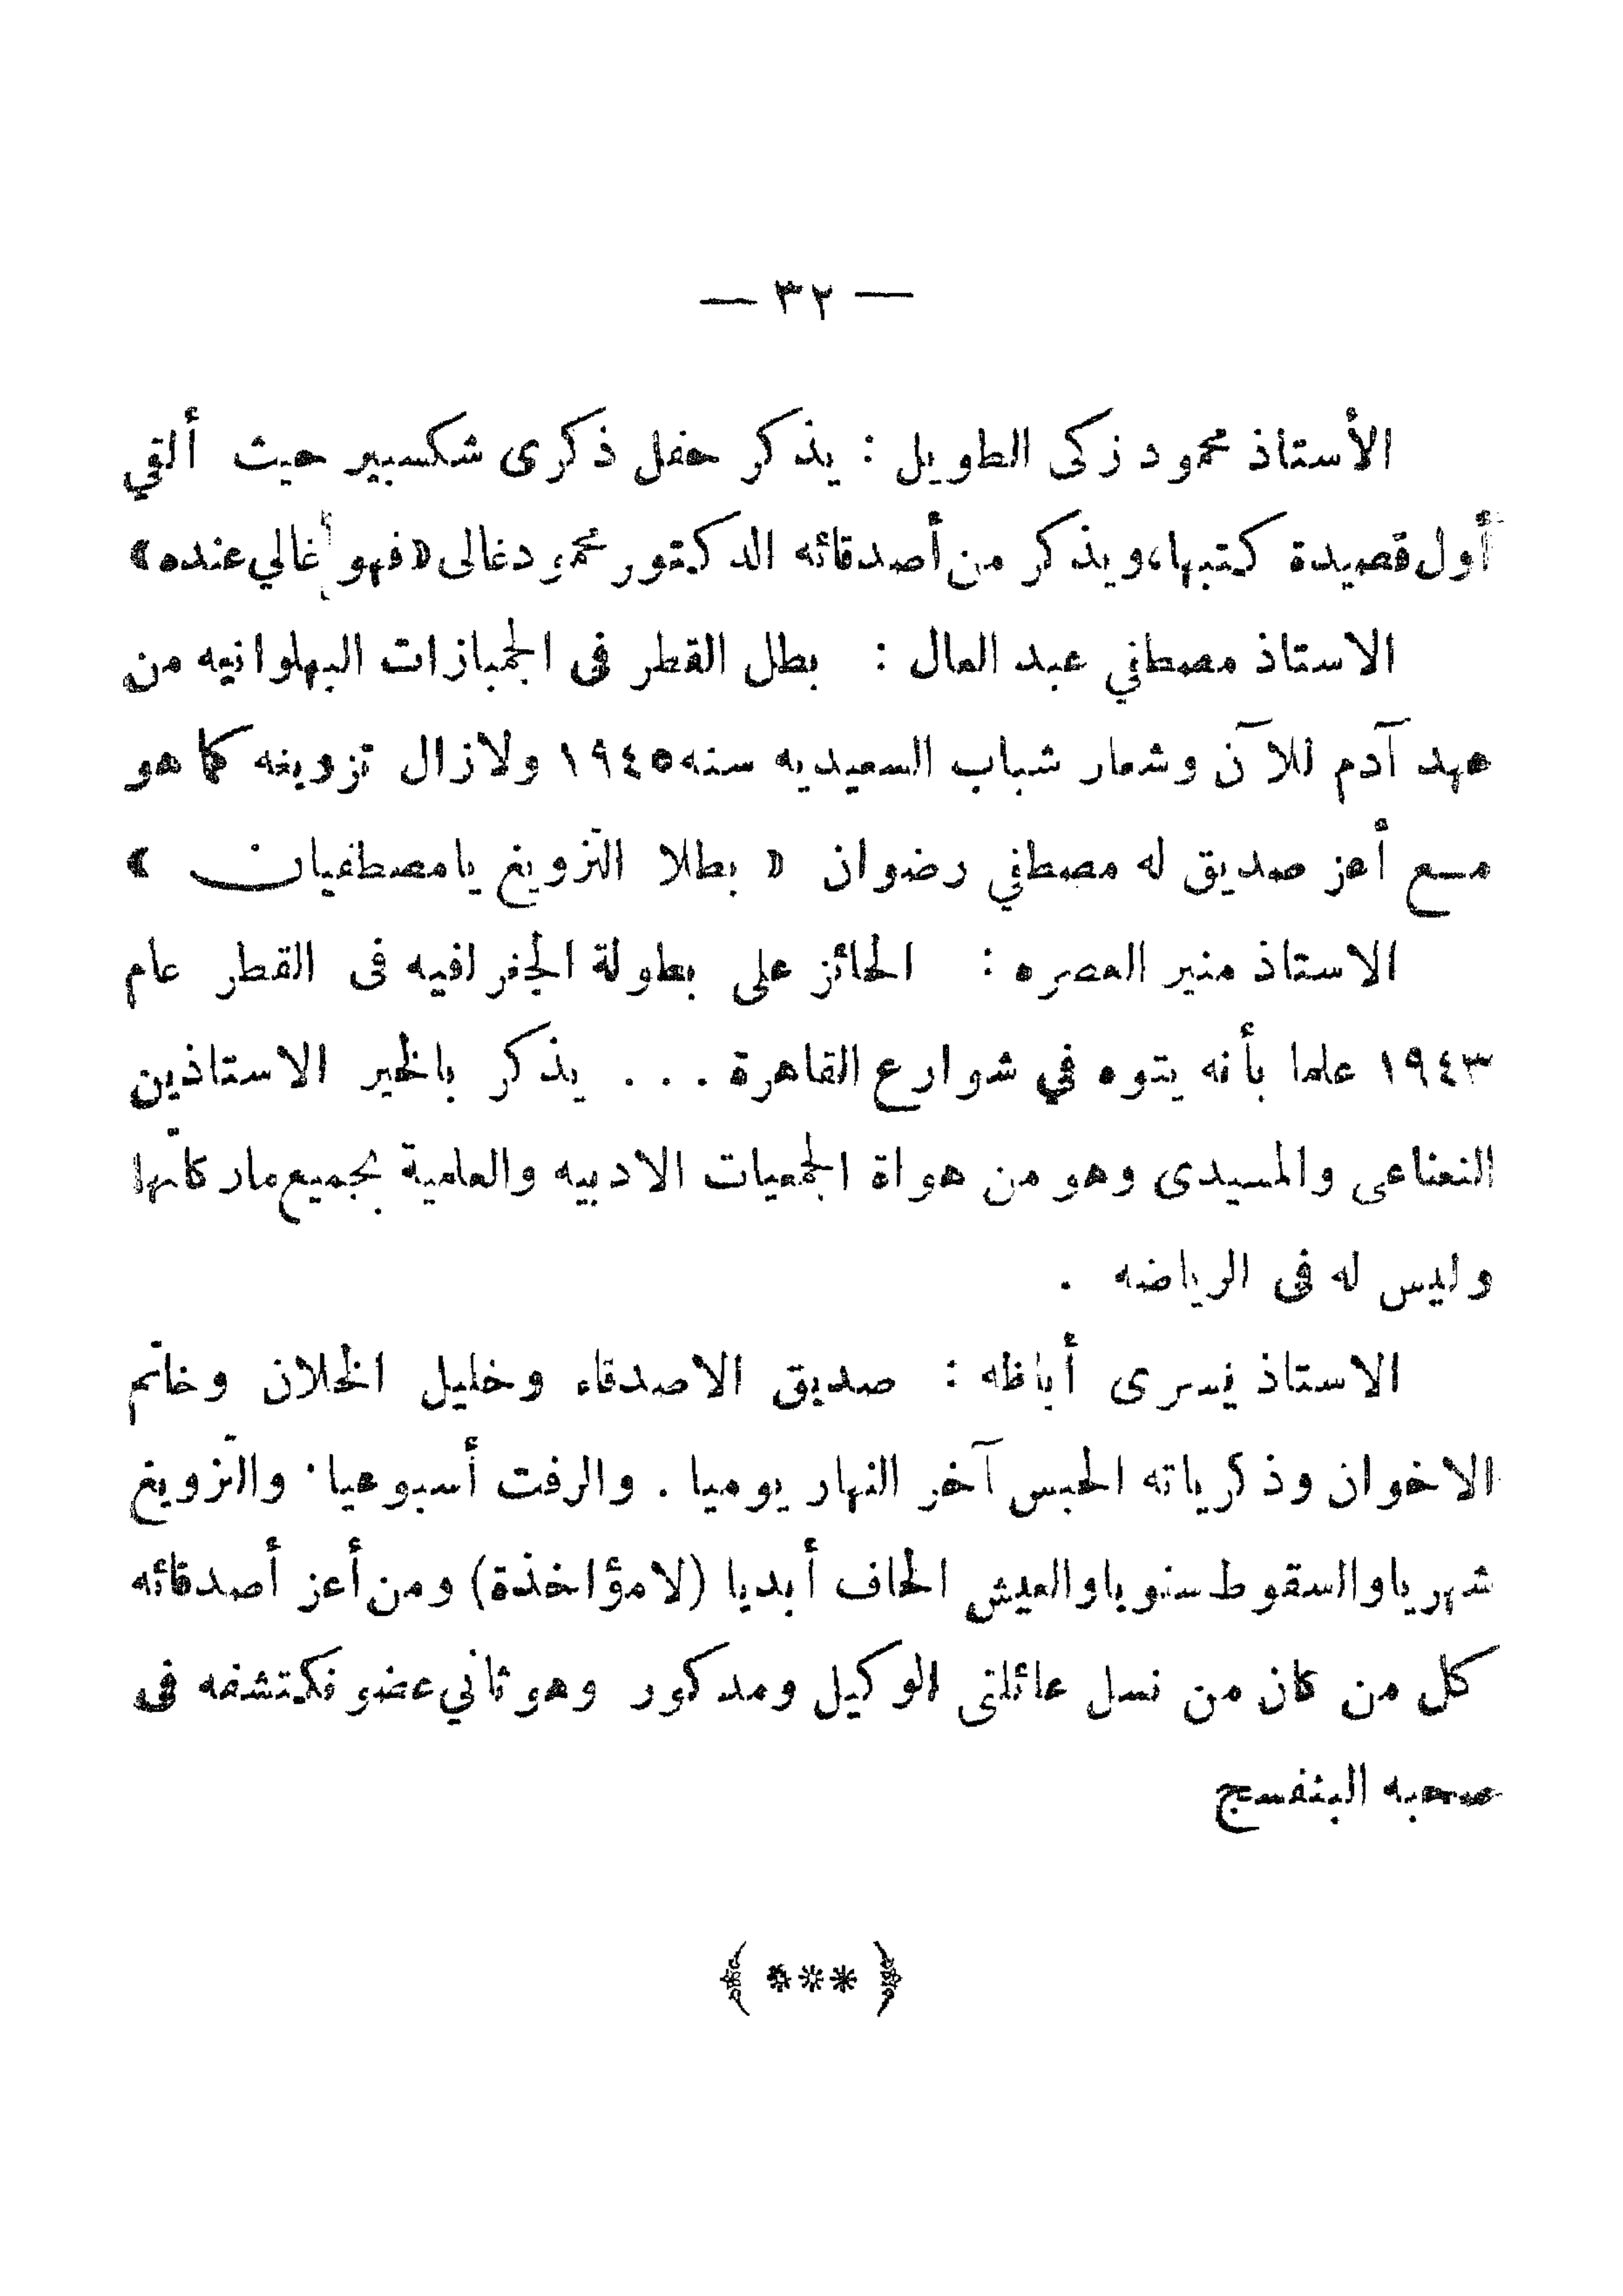 — ٣٢ —
الأستاذ محمود زكى الطويل : يذكر حفل ذكرى شكسبير حيث ألقي
أول قصيدة كتبها، ويذكر من أصدقائه الدكتور محمود غالى «فهو غالي عنده»
الاستاذ مصطفي عبد العال : بطل القطر فى الجمبازات البهلوانيه من
عهد آدم للآن وشعار شباب السعيديه سنه ١٩٤٥ ولازال تزويغه كما هو
مـع أعز صديق له مصطفي رضوان « بطلا التزويغ يامصطفيان »
الاستاذ منير العصره : الحائز على بطولة الجغرافيه فى القطر عام
١٩٤٣ علما بأنه يتوه في شوارع القاهرة . . . يذكر بالخير الاستاذين
النعناعى والمسيدى وهو من هواة الجمعيات الادبيه والعلمية بجميع ماركاتها
وليس له فى الرياضه .
الاستاذ يسرى أباظه : صديق الاصدقاء وخليل الخلان وخاتم
الاخوان وذكرياته الحبس آخر النهار يوميا . والرفت أسبوعيا . والتزويغ
شهريا والسقوط سنويا والعيش الحاف أبديا (لامؤاخذة) ومن أعز أصدقائه
كل من كان من نسل عائلتى الوكيل ومدكور وهو ثاني عضو نكتشفه فى
صحبه البنفسج
﴿ *** ﴾